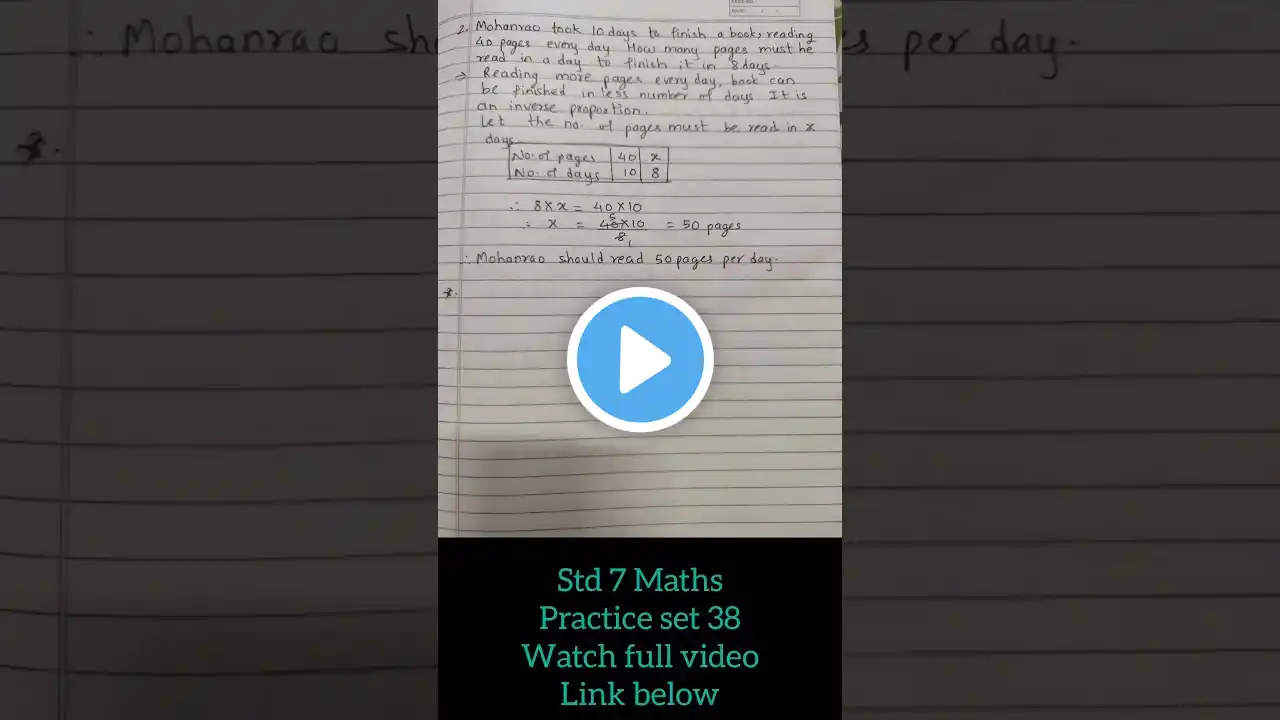 2. Mohanrao took 10 days to finish a book, reading
40 pages every day How many pages must he
read in a day to finish it in 8 days.
→ Reading more pages every day, book can
be finished in less number of days. It is
an inverse proportion.
Let the no. of pages must be read in x
days.
No. of pages 40 x
No. of days 10 8
∴ 8 X x = 40 X 10
∴ x = 40 X 10 / 8 = 50 pages
5
1
∴ Mohanrao should read 50 pages per day.
*.
Std 7 Maths
Practice set 38
Watch full video
Link below
∴ Mohanrao sh
s per day.
*.